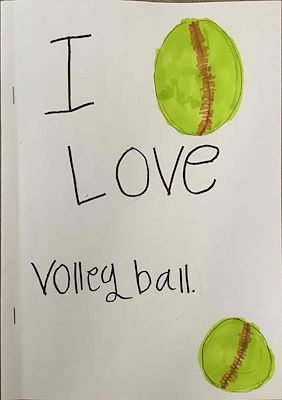 I
LOVE
Volley ball.